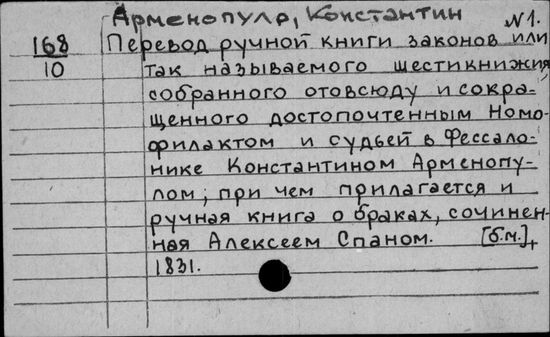 Арменопулр, Константин №1.
168 Перевод ручной книги законов или
10 так называемого шестикнижия,
собранного отовсюду и сокра-
щенного достопочтенным Номо-
филактом и судьей в Фессало-
нике Константином Арменопу-
лом; при чем прилагается и
ручная книга о браках, сочинен-
ная Алексеем Спаном. [б.м.],
1831.